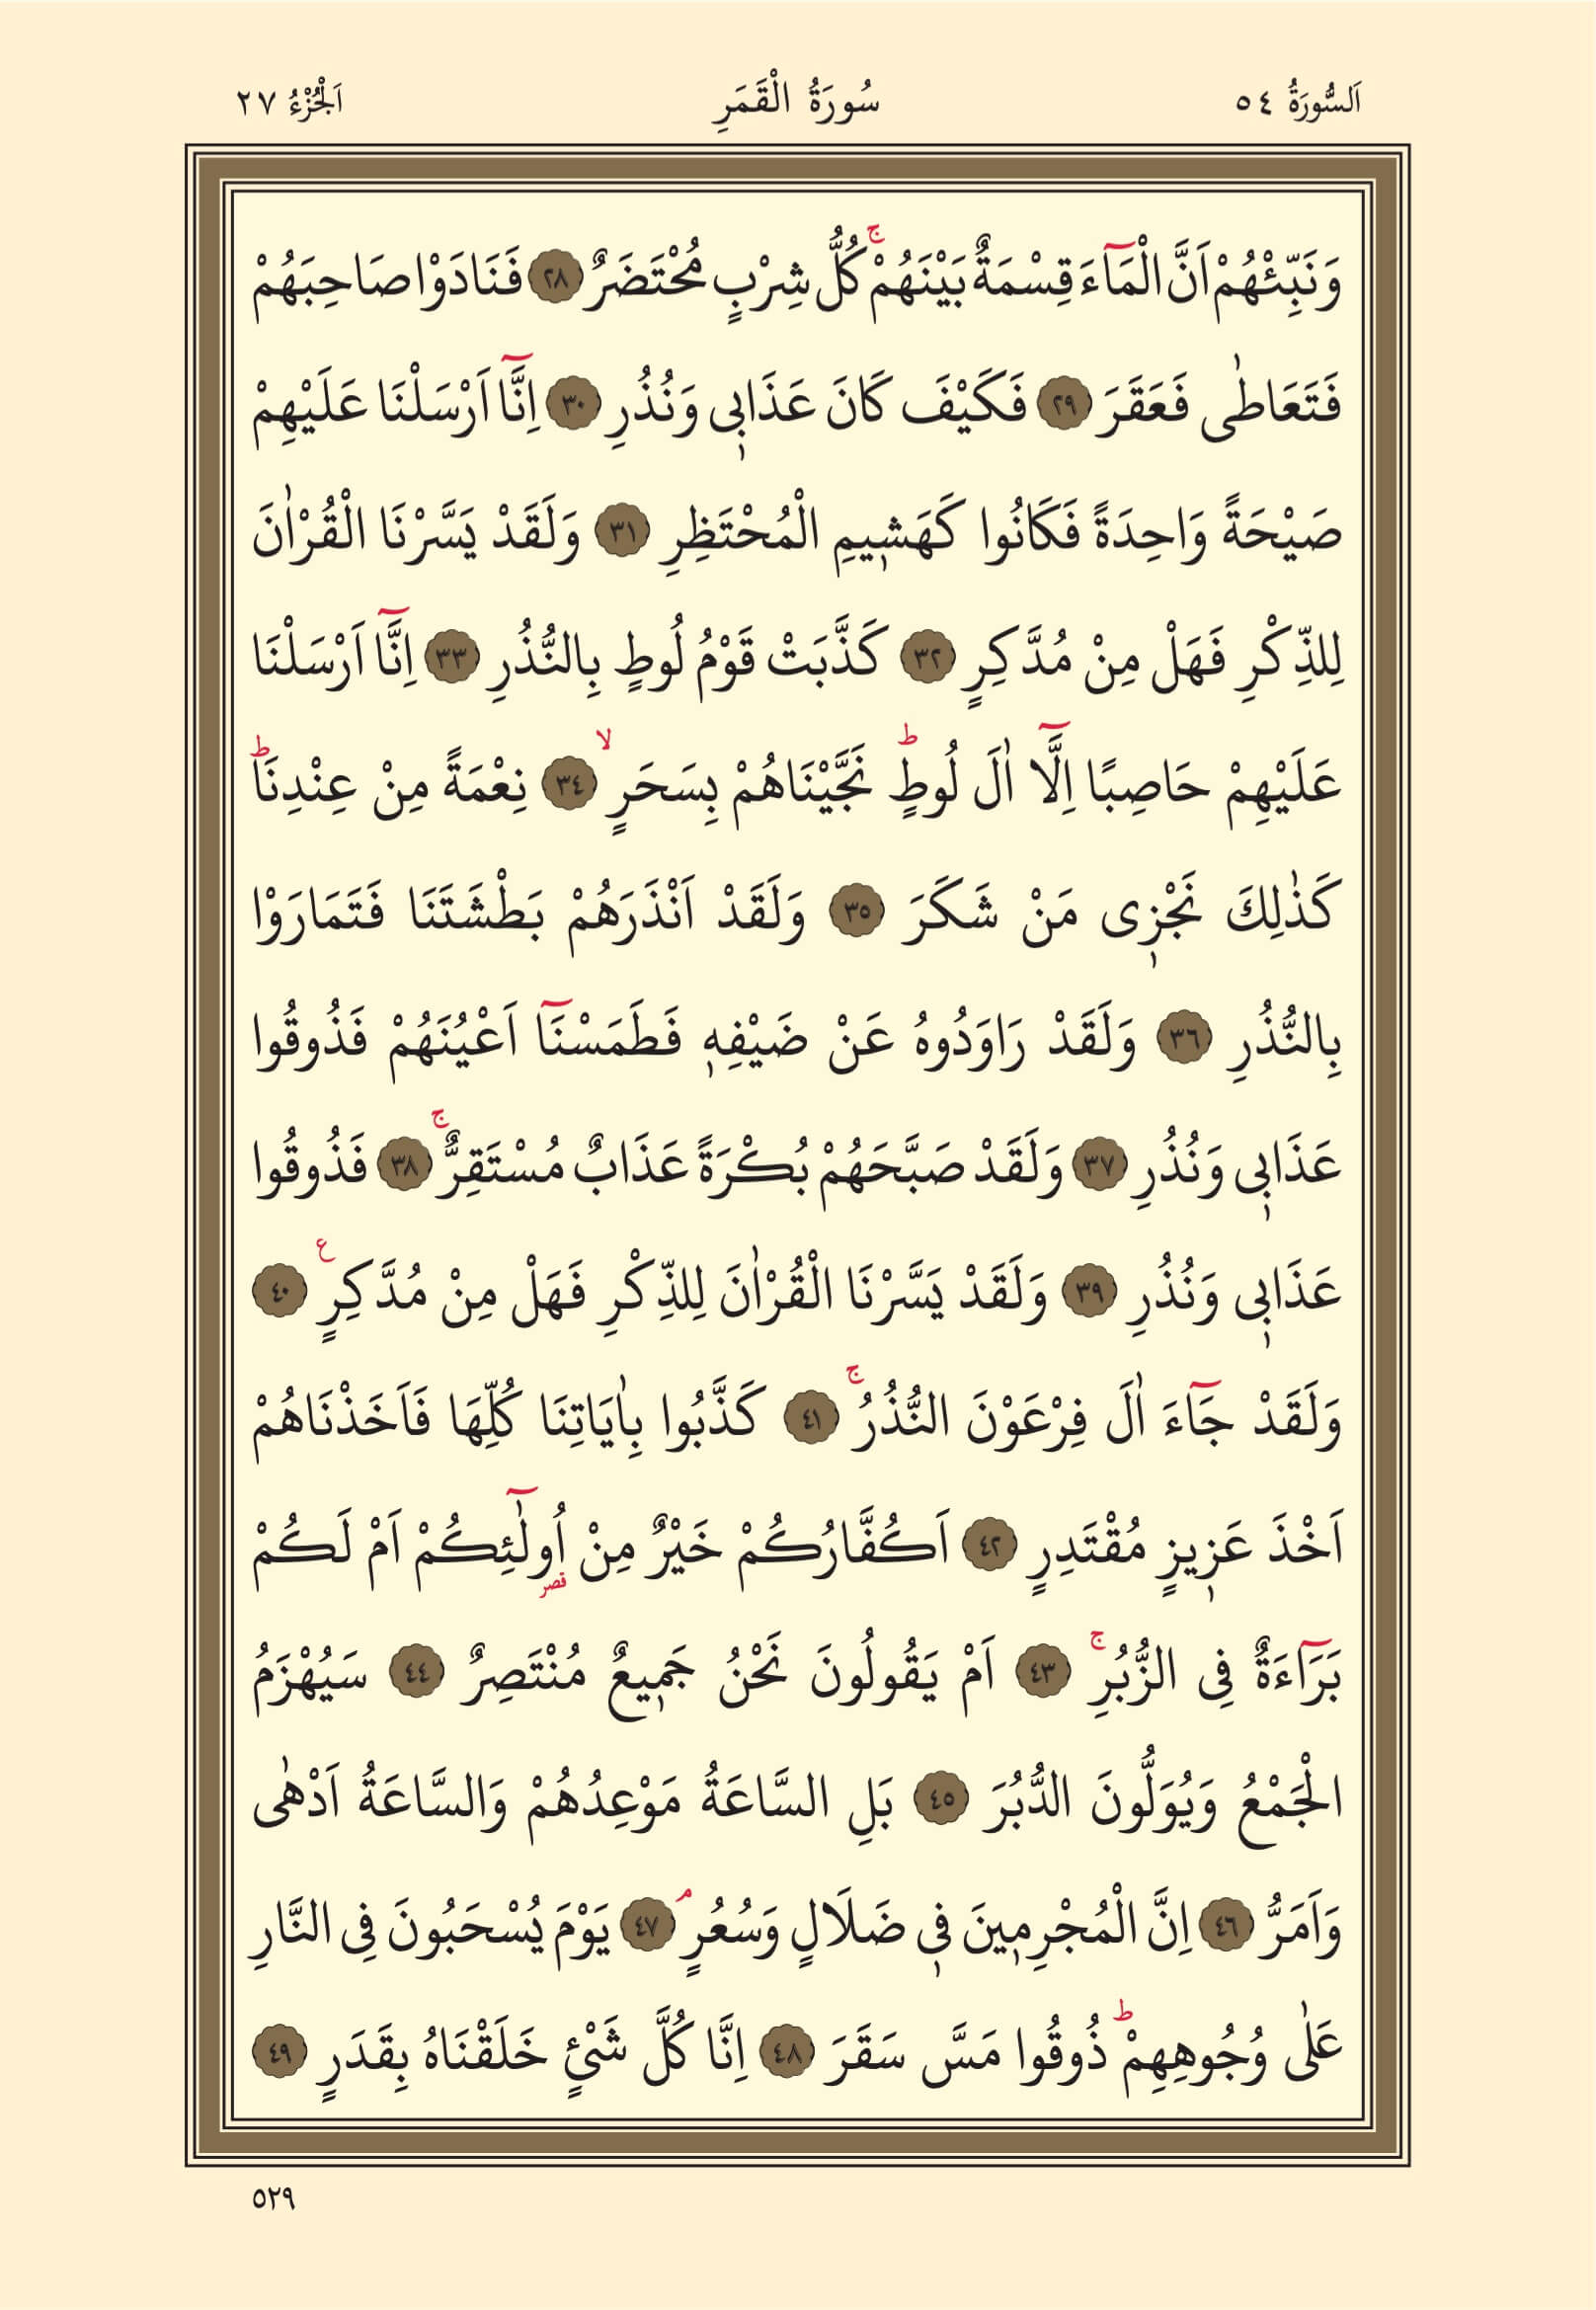 اَلسُّورَةُ ٥٤ سُورَةُ الْقَمَرِ اَلْجُزْءُ ٢٧
وَنَبِّئْهُمْ اَنَّ الْمَٓاءَ قِسْمَةٌ بَيْنَهُمْۚ كُلُّ شِرْبٍ مُحْتَضَرٌ ٢٨ فَنَادَوْا صَاحِبَهُمْ
فَتَعَاطٰى فَعَقَرَ ٢٩ فَكَيْفَ كَانَ عَذَابٖى وَنُذُرِ ٣٠ اِنَّٓا اَرْسَلْنَا عَلَيْهِمْ
صَيْحَةً وَاحِدَةً فَكَانُوا كَهَشٖيمِ الْمُحْتَظِرِ ٣١ وَلَقَدْ يَسَّرْنَا الْقُرْاٰنَ
لِلذِّكْرِ فَهَلْ مِنْ مُدَّكِرٍ ٣٢ كَذَّبَتْ قَوْمُ لُوطٍ بِالنُّذُرِ ٣٣ اِنَّٓا اَرْسَلْنَا
عَلَيْهِمْ حَاصِبًا اِلَّٓا اٰلَ لُوطٍؕ نَجَّيْنَاهُمْ بِسَحَرٍۙ ٣٤ نِعْمَةً مِنْ عِنْدِنَاؕ
كَذٰلِكَ نَجْزٖى مَنْ شَكَرَ ٣٥ وَلَقَدْ اَنْذَرَهُمْ بَطْشَتَنَا فَتَمَارَوْا
بِالنُّذُرِ ٣٦ وَلَقَدْ رَاوَدُوهُ عَنْ ضَيْفِهٖ فَطَمَسْنَٓا اَعْيُنَهُمْ فَذُوقُوا
عَذَابٖى وَنُذُرِ ٣٧ وَلَقَدْ صَبَّحَهُمْ بُكْرَةً عَذَابٌ مُسْتَقِرٌّۚ ٣٨ فَذُوقُوا
عَذَابٖى وَنُذُرِ ٣٩ وَلَقَدْ يَسَّرْنَا الْقُرْاٰنَ لِلذِّكْرِ فَهَلْ مِنْ مُدَّكِرٍ ع ٤٠
وَلَقَدْ جَٓاءَ اٰلَ فِرْعَوْنَ النُّذُرُۚ ٤١ كَذَّبُوا بِاٰيَاتِنَا كُلِّهَا فَاَخَذْنَاهُمْ
اَخْذَ عَزٖيزٍ مُقْتَدِرٍ ٤٢ اَكُفَّارُكُمْ خَيْرٌ مِنْ اُو۬لٰٓئِكُمْ قصر اَمْ لَكُمْ
بَرَٓاءَةٌ فِى الزُّبُرِۚ ٤٣ اَمْ يَقُولُونَ نَحْنُ جَمٖيعٌ مُنْتَصِرٌ ٤٤ سَيُهْزَمُ
الْجَمْعُ وَيُوَلُّونَ الدُّبُرَ ٤٥ بَلِ السَّاعَةُ مَوْعِدُهُمْ وَالسَّاعَةُ اَدْهٰى
وَاَمَرُّ ٤٦ اِنَّ الْمُجْرِمٖينَ فٖى ضَلَالٍ وَسُعُرٍۘ ٤٧ يَوْمَ يُسْحَبُونَ فِى النَّارِ
عَلٰى وُجُوهِهِمْؕ ذُوقُوا مَسَّ سَقَرَ ٤٨ اِنَّا كُلَّ شَىْءٍ خَلَقْنَاهُ بِقَدَرٍ ٤٩
٥٢٩